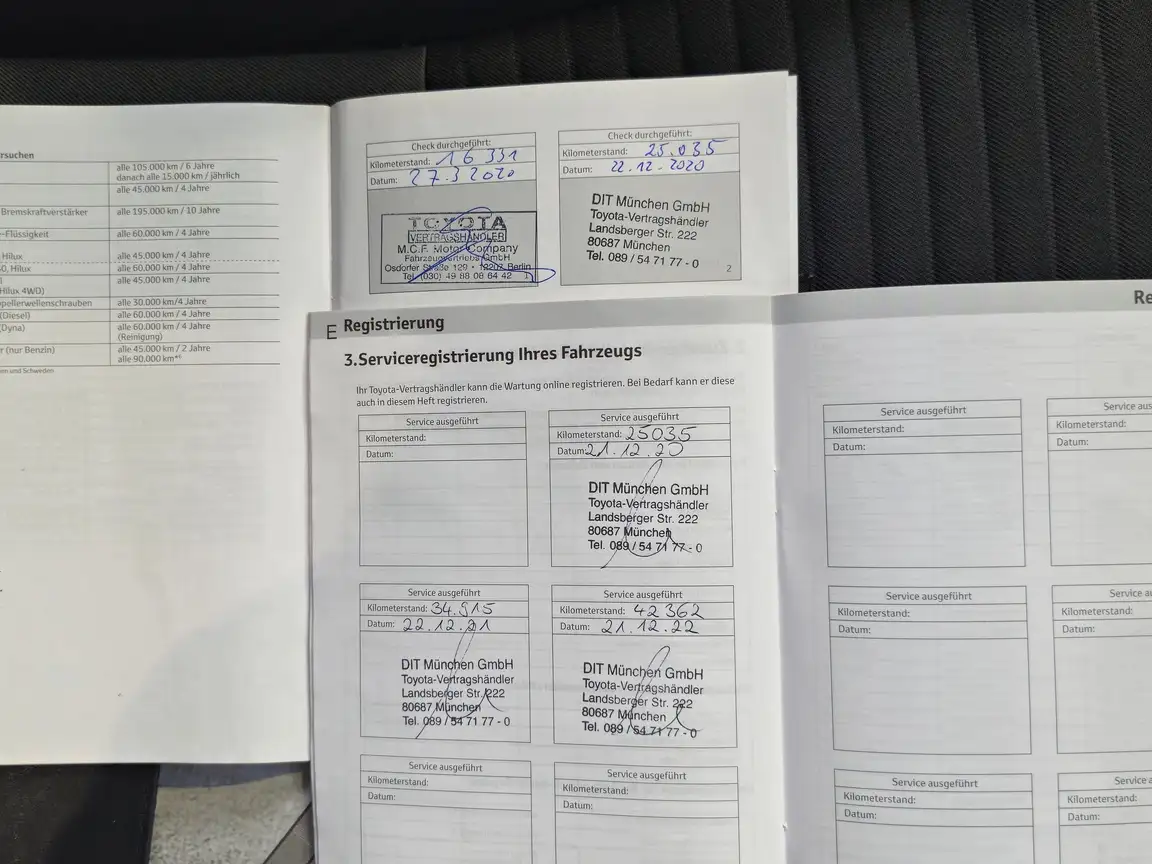 rsuchen
alle 105.000 km / 6 Jahre
danach alle 15.000 km / jährlich
alle 45.000 km / 4 Jahre
Bremskraftverstärker alle 195.000 km / 10 Jahre
-Flüssigkeit alle 60.000 km / 4 Jahre
Hilux alle 45.000 km / 4 Jahre
0, Hilux alle 60.000 km / 4 Jahre
alle 45.000 km / 4 Jahre
Hilux 4WD)
pellerwellenschrauben alle 30.000 km/4 Jahre
(Diesel) alle 60.000 km / 4 Jahre
(Dyna) alle 60.000 km / 4 Jahre
(Reinigung)
r (nur Benzin) alle 45.000 km / 2 Jahre
alle 90.000 km*¹
en und Schweden
Check durchgeführt:
Kilometerstand: 16 331
Datum: 27.3 2020
TOYOTA
VERTRAGSHÄNDLER
M.C.F. Motor Company
Fahrzeugvertriebs GmbH
Osdorfer Straße 129 · 12207 Berlin
Tel. (030) 49 88 08 64 42 1
Check durchgeführt:
Kilometerstand: 25.035
Datum: 22.12.2020
DIT München GmbH
Toyota-Vertragshändler
Landsberger Str. 222
80687 München
Tel. 089 / 54 71 77 - 0
2
E Registrierung
3.Serviceregistrierung Ihres Fahrzeugs
Ihr Toyota-Vertragshändler kann die Wartung online registrieren. Bei Bedarf kann er diese
auch in diesem Heft registrieren.
Service ausgeführt
Kilometerstand:
Datum:
Service ausgeführt
Kilometerstand: 25035
Datum: 21.12.20
DIT München GmbH
Toyota-Vertragshändler
Landsberger Str. 222
80687 München
Tel. 089 / 54 71 77 - 0
Service ausgeführt
Kilometerstand: 34.915
Datum: 22.12.21
DIT München GmbH
Toyota-Vertragshändler
Landsberger Str. 222
80687 München
Tel. 089 / 54 71 77 - 0
Service ausgeführt
Kilometerstand: 42 362
Datum: 21.12.22
DIT München GmbH
Toyota-Vertragshändler
Landsberger Str. 222
80687 München
Tel. 089 / 54 71 77 - 0
Service ausgeführt
Kilometerstand:
Datum:
Service ausgeführt
Kilometerstand:
Datum:
Re
Service ausgeführt
Kilometerstand:
Datum:
Service aus
Kilometerstand:
Datum:
Service ausgeführt
Kilometerstand:
Datum:
Service a
Kilometerstand:
Datum:
Service ausgeführt
Kilometerstand:
Datum:
Service a
Kilometerstand:
Datum: